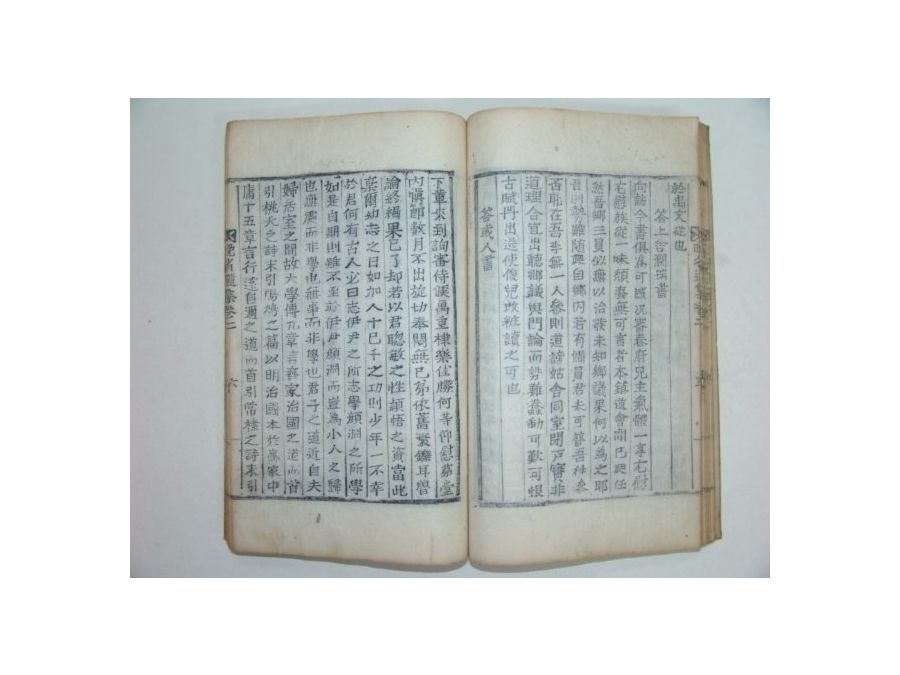 於書文從也
答上舍潤瑞書
向訪今書俱庸可感況審春府兄主氣體一享尤慰
慰族從一味頹奏無可言者本鎭道會聞已
吾鄕三員必無以治疏未知鄕議果何以爲之耶
吾則勢難隨鄕內若有備員君未可替吾往參
否耶在吾李無一人參則道謗姑舍同室閉戶實非
道理合宜出聽鄕議與門論而勢難動可歎可恨
古賦再出送使後兒改粧讀之可也
答或人書
下童來到詢審侍誤萬重棣樂佳勝何等仰慰
內數月不出旋切奉悶無已弟依舊耳
論終緝果已了却若以君聰敏之性穎悟之資當此
爾幼志之日如加人十己千之功則少年一不幸
於君何有古人必曰志伊尹之所志學顔淵之所學
如是自期則雖不於伊尹顔淵而豈爲小人之歸
也無處而非學也無事而非學也君子之道近自夫
婦居室之間故大學傳九章言齊家治國之道而首
引桃夭之詩末引鳲鳩之篇以明治國本於齊家中
庸十五章言行遠自邇之道而首引常棣之詩末引
遺集卷二
六